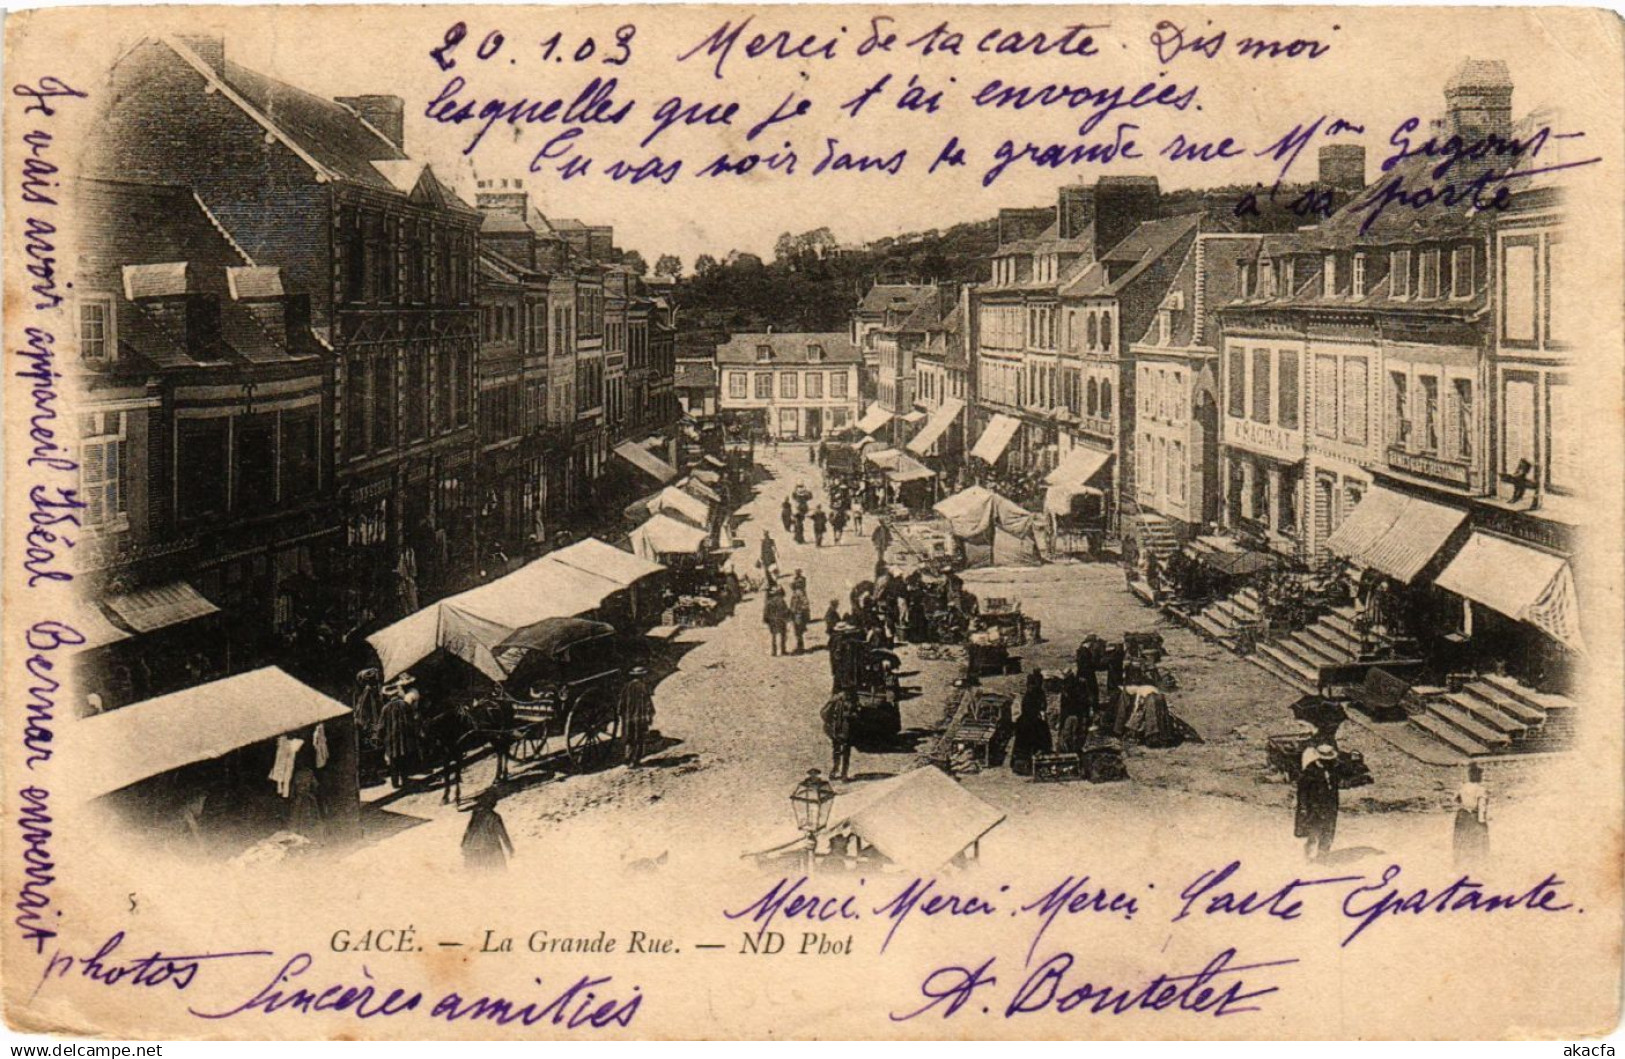 20.1.03 Merci de ta carte. Dis moi
lesquelles que je t'ai envoyées.
Tu vas voir dans la grande rue Mme Gigout
à sa porte
Je vais avoir appareil Idéal Bernar enverrait
photos Sincères amitiés
Merci. Merci. Merci Carte Epatante.
A. Boutelet
5
GACÉ. — La Grande Rue. — ND Phot
Delcampe.net
akacfa